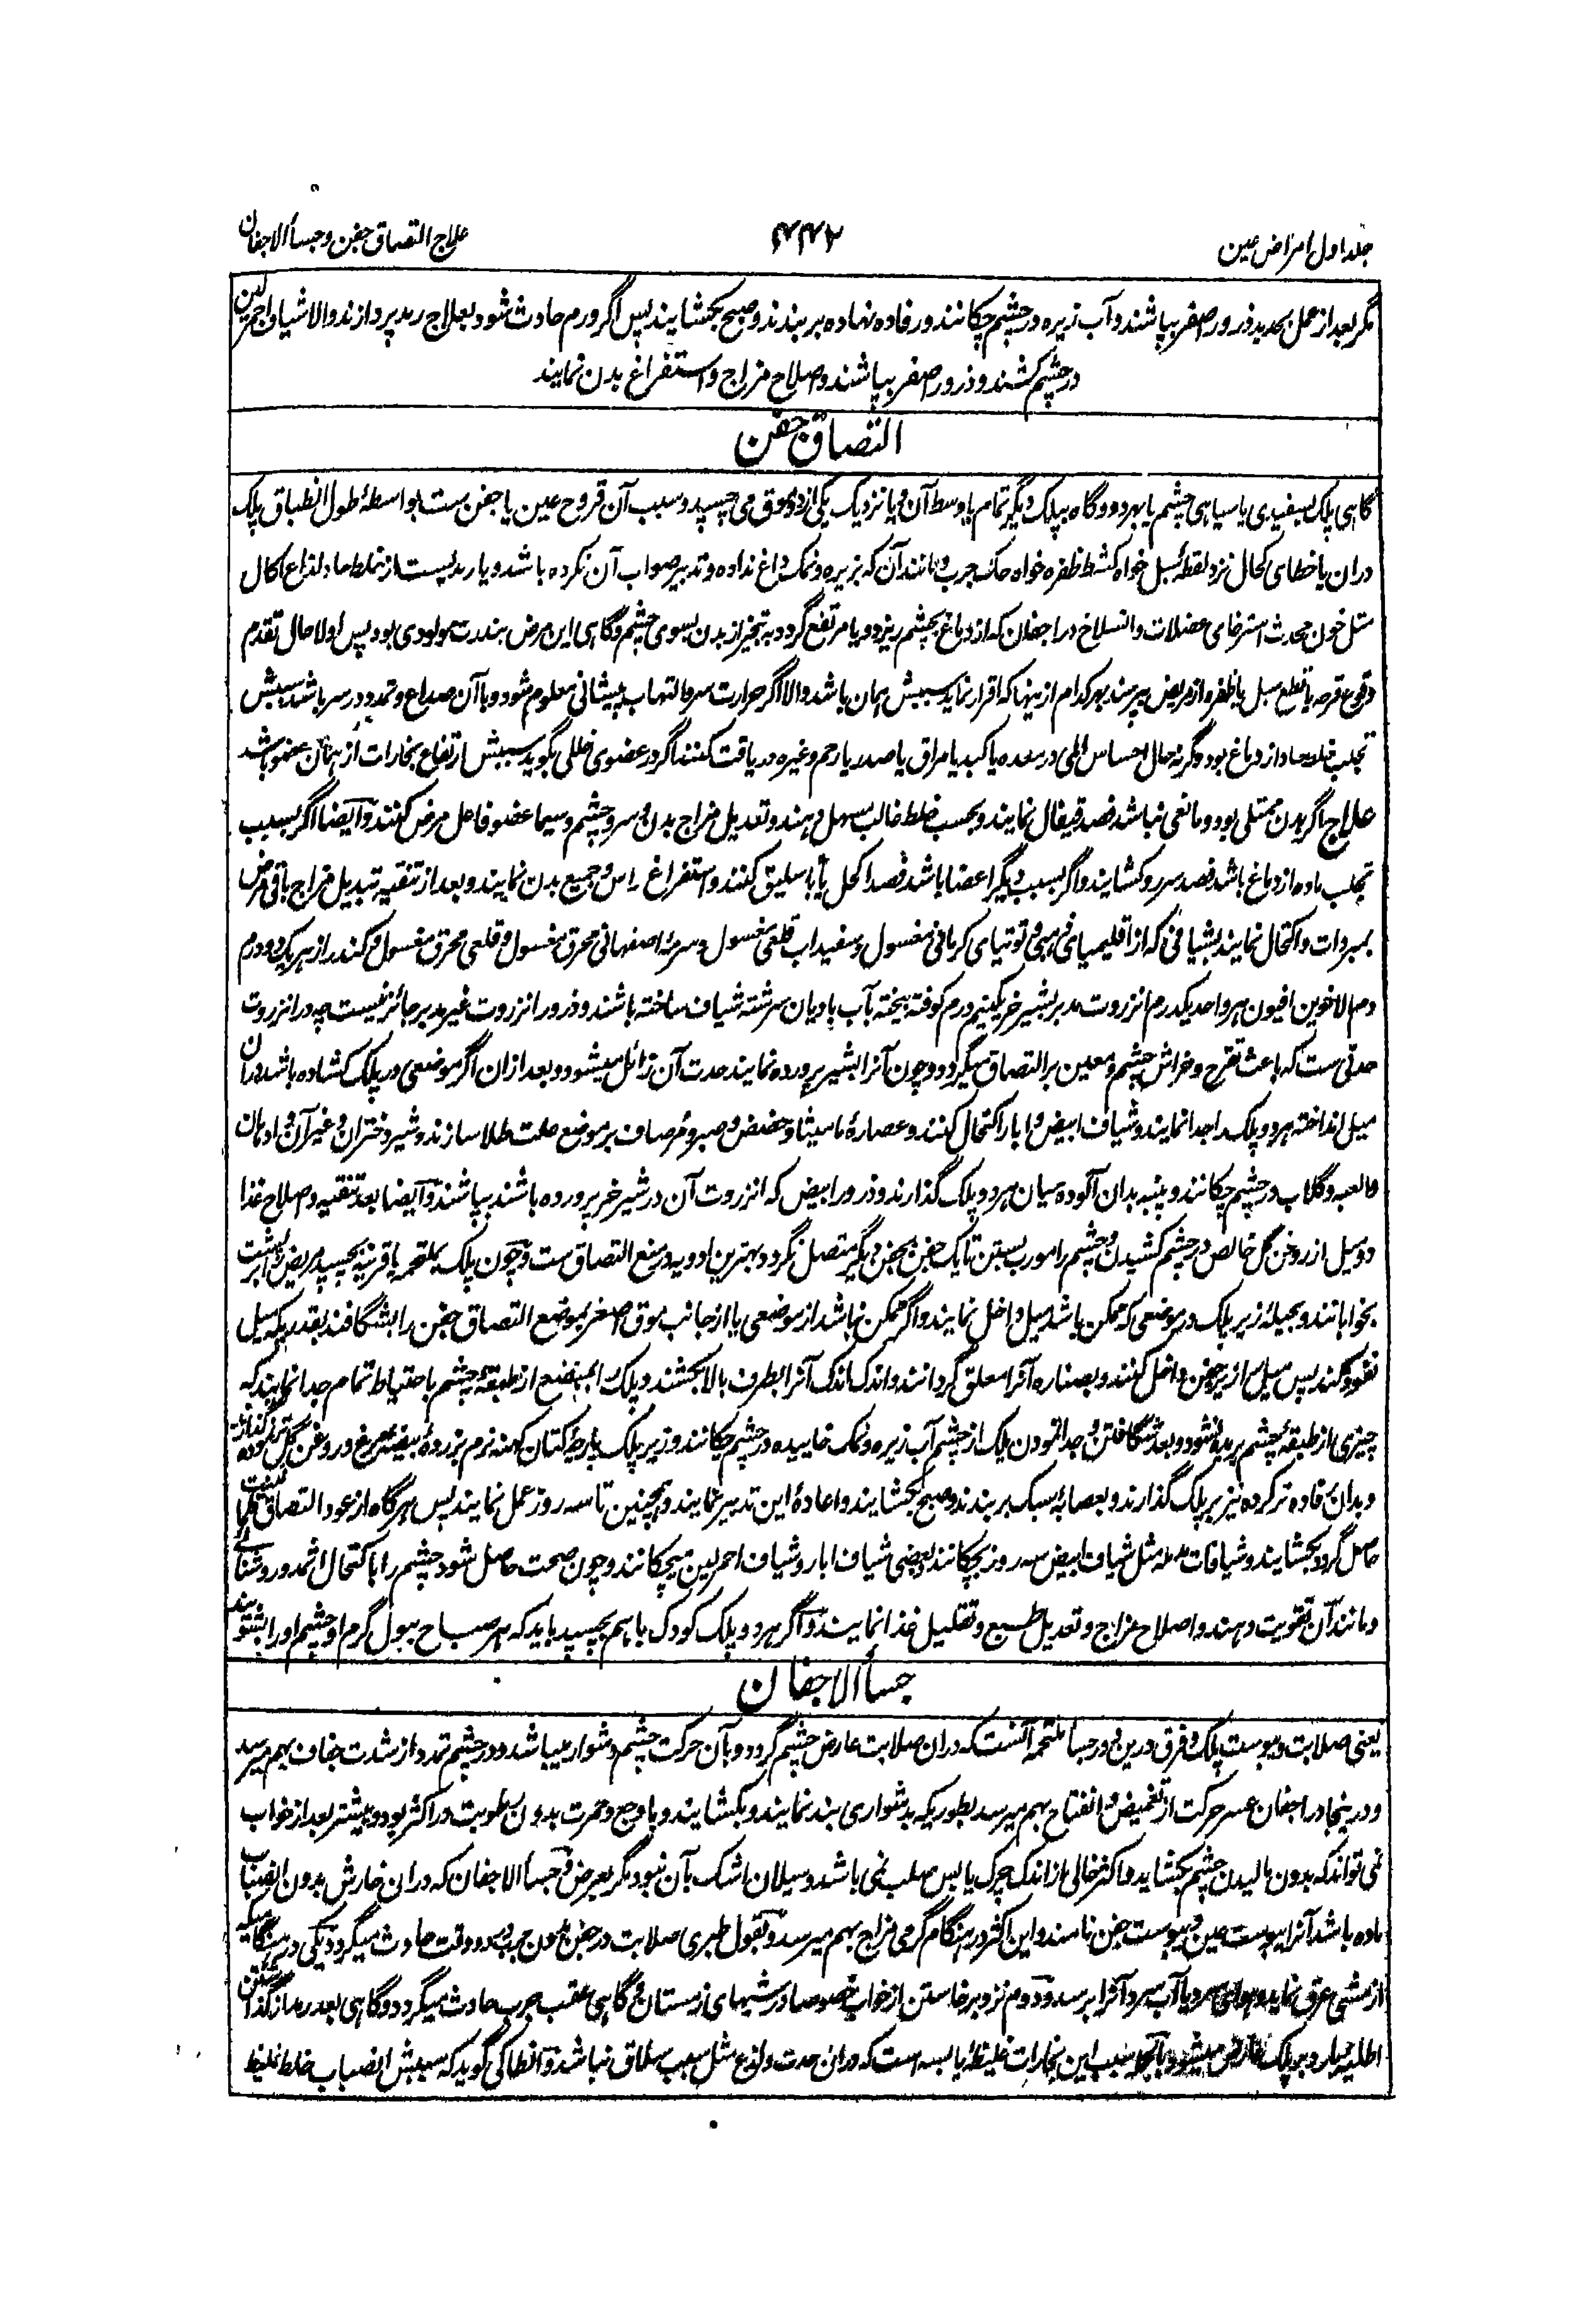 جلد اول امراض عین
۴۴۲
علاج التصاق جفن و جسأ الاجفان
مگر بعد از عمل بحدید ذرور اصفر بپاشند و آب زیره در چشم چکانند و رفاده نهاده بر بندند و صبح بکشایند پس اگر ورم حادث شود بعلاج رمد پردازند والا شیاف احمر لین
در چشم کشند و ذرور اصفر بپاشند و اصلاح مزاج و استفراغ بدن نمایند
التصاق جفن
گاهی پلک بسفیدی یا سیاهی چشم یا بهر دو و گاه بپلک دیگر تمام یا وسط آن و یا نزدیک یکی از دو موق می چسپد و سبب آن قروح عین یا جفن ست بواسطهٔ طول انطباق پلک
دران یا خطای کحال نزد لقطهٔ سبل خواه کشط ظفره خواه حک جرب و مانند آن که بزیره و نمک داغ نداده و تدبیر صواب آن نکرده باشد و یا رمدیست از خلط حاد لذاع اکال
مثل خون محدث استرخای عضلات و انسلاخ در اجفان که از دماغ بچشم ریزد و یا مرتفع گردد به تبخیر از بدن بسوی چشم و گاهی این مرض بندرت مولودی بود پس اولا حال تقدم
وقوع قرحه یا قطع سبل یا ظفره از مریض بپرسند بهر کدام ازینها که اقرار نماید سببش همان باشد والا اگر حرارت سر و التهاب پیشانی معلوم شود و با آن صداع و تمدد در سر باشد سببش
تجلب خلط حاد از دماغ بود و گرنه حال احساس المی در معده یا کبد یا مراق یا صدر یا رحم و غیره دریافت کنند اگر در عضوی خللی بگوید سببش ارتفاع بخارات از همان عضو باشد
علاج اگر بدن ممتلی بود و مانعی نباشد فصد قیفال نمایند و بحسب خلط غالب مسهل دهند و تعدیل مزاج بدن و سر و چشم و سیما عضو فاعل مرض کنند و ایضا اگر بسبب
تجلب ماده از دماغ باشد فصد سررو کشایند و اگر بسبب دیگر اعضا باشد فصد اکحل یا باسلیق کنند و استفراغ راس و جمیع بدن نمایند و بعد از تنقیه تبدیل مزاج باقی مرض
بمبردات و اکتحال نمایند بشیافی که از اقلیمیای ذهبی و توتیای کرمانی مغسول و سفیداب قلعی مغسول و سرمهٔ اصفهانی محرق مغسول و قلعی محرق مغسول و کندر از هر یک دو درم
دم الاخوین افیون هر واحد یکدرم انزروت مدبر بشیر خر یکنیم درم کوفته بیخته بآب بادیان سرشته شیاف ساخته باشند و ذرور انزروت غیر مدبر جائز نیست چه در انزروت
حدتی ست که باعث تقرح و خراش چشم و معین بر التصاق میگردد و چون آنرا بشیر پرورده نمایند حدت آن زائل میشود و بعد ازان اگر موضعی در پلک کشاده باشد دران
میل انداخته هر دو پلک را جدا نمایند و شیاف ابیض و ابار اکتحال کنند و عصارهٔ مامیثا و حضض و صبر و مر صاف بر موضع علت طلا سازند و شیر دختران و غیر آن و ادهان
و العبه و گلاب در چشم چکانند و پنبه بدان آلوده میان هر دو پلک گذارند و ذرور ابیض که انزروت آن در شیر خر پرورده باشند بپاشند و ایضا بعد تنقیه و اصلاح غذا
دو میل از روغن گل خالص در چشم کشیدن و چشم را مورب بستن تا یک جفن بجفن دیگر متصل نگردد بهترین ادویه در منع التصاق ست و چون پلک بملتحمه یا قرنیه بچسپد مریض را بر پشت
بخوابانند و بحیله زیر پلک در موضعی که ممکن باشد میل داخل نمایند و اگر ممکن نباشد از موضعی یا از جانب موق اصغر بموضع التصاق جفن را بشگافند بقدریکه میل
نفوذ کند پس میل را زیر جفن داخل کنند و بصناره آنرا معلق گردانند و اندک اندک آنرا بطرف بالا بکشند و پلک را بمبضع از طبقهٔ چشم باحتیاط تمام جدا نمایند که
چیزی از طبقهٔ چشم بریده نشود و بعد شگافتن و جدا نمودن پلک از چشم آب زیره و نمک خاییده در چشم چکانند و زیر پلک پارچهٔ کتان کهنه نرم بزردهٔ بیضهٔ مرغ و روغن گل تر نموده گذارند
و بدان رفاده تر کرده نیز بر پلک گذارند و بعصابهٔ سبک بر بندند و صبح بکشایند و اعادهٔ این تدبیر نمایند و همچنین تا سه روز عمل نمایند پس هرگاه از عود التصاق
حاصل گردد بکشایند و شیافات مدمله مثل شیاف ابیض سه روز بچکانند و بعضی شیاف ابار و شیاف احمر لین میچکانند و چون صحت حاصل شود چشم را باکتحال اثمد و روشنائی
و مانند آن تقویت دهند و اصلاح مزاج و تعدیل طبع و تقلیل غذا نمایند و اگر هر دو پلک کودک باهم بچسپد باید که هر صباح ببول گرم او چشم او را بشویند
جسأ الاجفان
یعنی صلابت و یبوست پلک و فرق درین و در جسأ ملتحمه آنست که دران صلابت عارض چشم گردد و بآن حرکت چشم دشوار میباشد و در چشم تمدد از شدت جفاف بهم میرسد
و درینجا در اجفان عسر حرکت از تغمیض و انفتاح بهم میرسد بطوریکه بدشواری بند نمایند و بکشایند و با وجع و حمرت بدون رطوبت در اکثر بود و بیشتر بعد از خواب
نمی تواند که بدون مالیدن چشم بکشاید و اکثر خالی از اندک چرک یابس صلب نمی باشد و سیلان اشک بآن نبود مگر بعرض و جسأ الاجفان که دران خارش بدون انصباب
ماده باشد آنرا یبوست عین و یبوست جفن نامند و این اکثر در هنگام گرمی مزاج بهم میرسد و بقول طبری صلابت در جفن بدون جرب بدو وقت حادث میگردد یکی در هنگامیکه
از مشی عرق نماید و هوای سرد یا آب سرد آنرا برسد و دوم نزد برخاستن از خواب خصوصا در شبهای زمستان و گاهی عقب جرب حادث میگردد و گاهی بعد رمد از گذاشتن
اطلیه بارد بر پلک عارض میشود و بالجمله سبب این بخارات غلیظهٔ یابسه است که دران حدت و لذع مثل سبب سلاق نباشد و انطاکی گوید که سببش انصباب خلط غلیظ